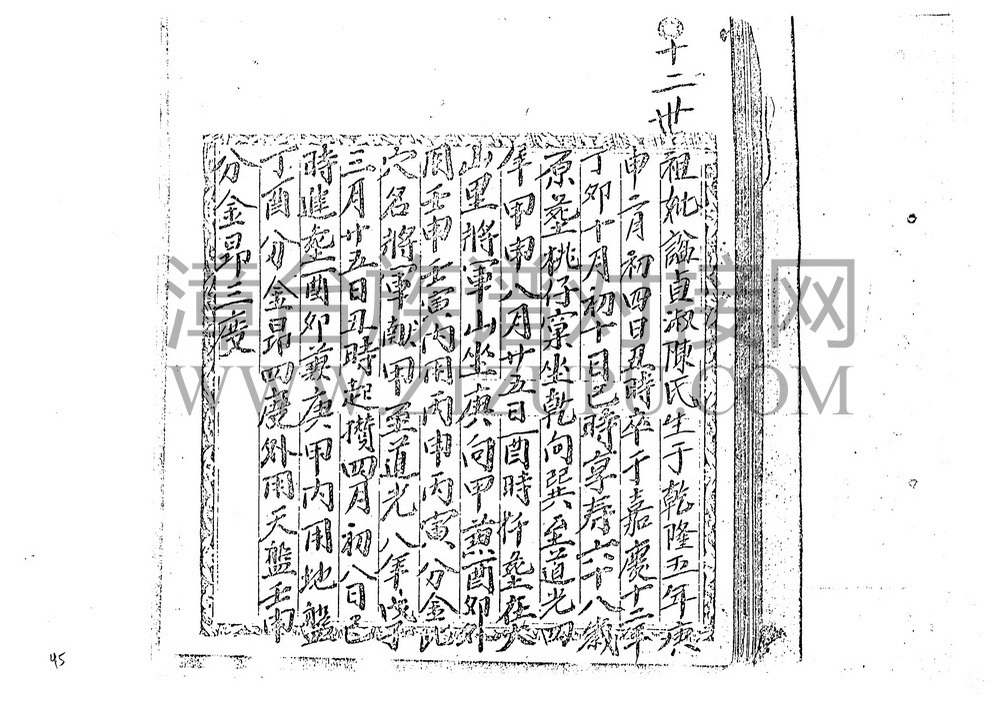 十二世
祖妣諡貞淑陳氏生于乾隆五年庚
申二月初四日丑時卒于嘉慶十二年
丁卯十月初十日巳時享寿六十八歲
原葬桃仔藔坐乾向巽至道光四
年甲申八月廿五日酉時扦葬在大
山里將軍山坐庚向甲兼酉卯外
用壬申壬寅內用丙申丙寅分金此
穴名將軍献甲至道光八年戊子
三月廿五日丑時起攢四月初八日巳
時進葬酉卯兼庚甲內用地盤
丁酉分金昂四度外用天盤壬申
分金昂三度
漳台族谱对接网
WWW.ZTZUPU.COM
45